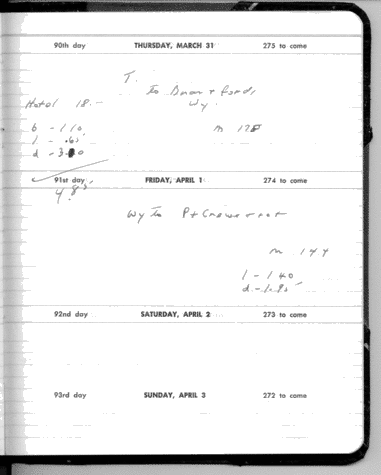 90th day THURSDAY, MARCH 31 275 to come
T.
To
Hotel 18.- Wy.
b - 1.10 m 175
l - .65
d - 3.10
91st day FRIDAY, APRIL 1 274 to come
4.85
Wy To
m 144
l - 1.40
d - 1.85
92nd day SATURDAY, APRIL 2 273 to come
93rd day SUNDAY, APRIL 3 272 to come